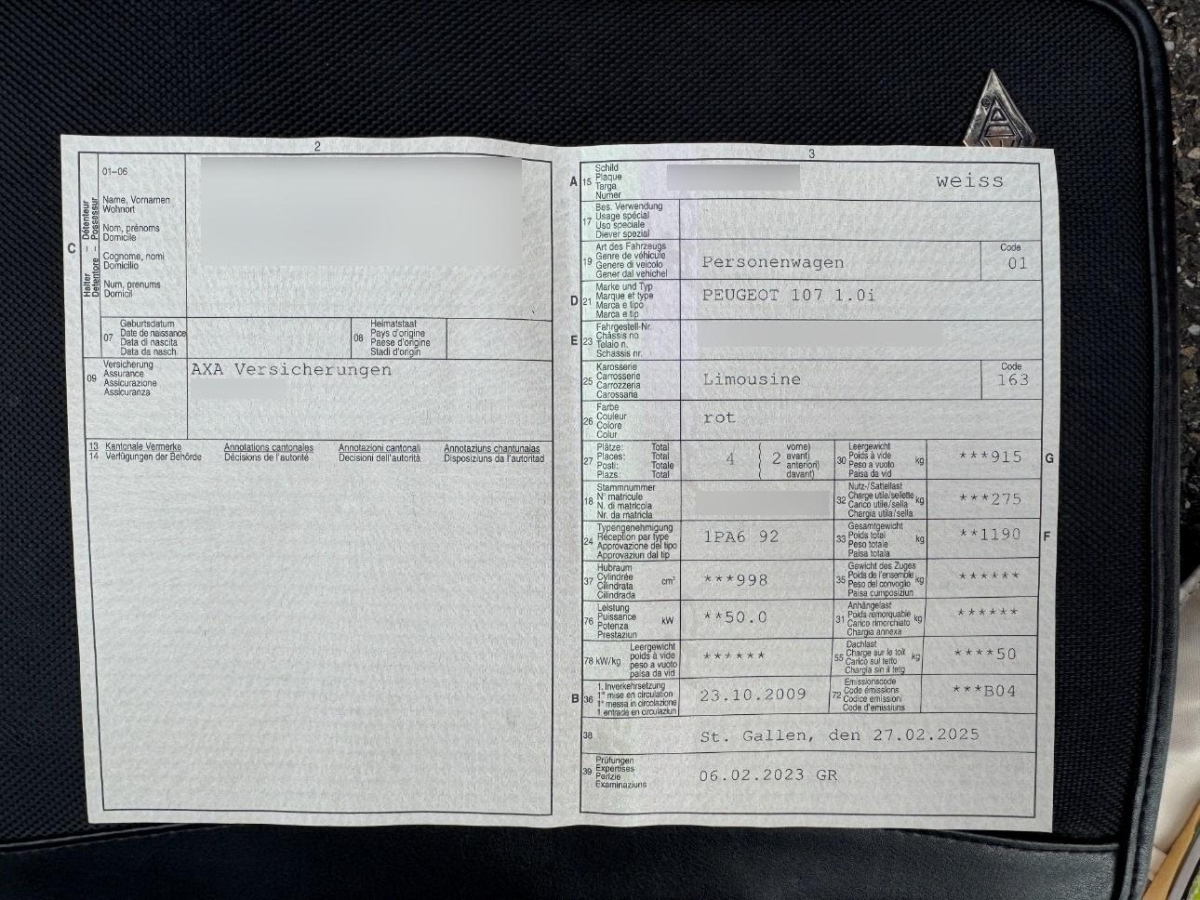 2
01-06
Name, Vornamen
Wohnort
Nom, prénoms
Domicile
Cognome, nomi
Domicilio
Num, prenums
Domicil
C
Halter – Détenteur
Detentore – Possessur
07
Geburtsdatum
Date de naissance
Data di nascita
Data da nasch.
08
Heimatstaat
Pays d'origine
Paese d'origine
Stadi d'origin
09
Versicherung
Assurance
Assicurazione
Assicuranza
AXA Versicherungen
13 Kantonale Vermerke Annotations cantonales Annotazioni cantonali Annotaziuns chantunalas
14 Verfügungen der Behörde Décisions de l'autorité Decisioni dell'autorità Disposiziuns da l'autoritad
3
A 15
Schild
Plaque
Targa
Numer
weiss
17
Bes. Verwendung
Usage spécial
Uso speciale
Diever spezial
19
Art des Fahrzeugs
Genre de véhicule
Genere di veicolo
Gener dal vehichel
Personenwagen
Code
01
D 21
Marke und Typ
Marque et type
Marca e tipo
Marca e tip
PEUGEOT 107 1.0i
E 23
Fahrgestell-Nr.
Châssis no
Telaio n.
Schassis nr.
25
Karosserie
Carrosserie
Carrozzeria
Carossaria
Limousine
Code
163
26
Farbe
Couleur
Colore
Colur
rot
27
Plätze: Total
Places: Total
Posti: Totale
Plazs: Total
4
2
vorne)
avant)
anteriori)
davant)
30
Leergewicht
Poids à vide
Peso a vuoto
Paisa da vid
kg
***915
G
18
Stammnummer
N° matricule
N. di matricola
Nr. da matricla
32
Nutz-/Sattellast
Charge utile/sellette
Carico utile/sella
Chargia utila/sella
kg
***275
24
Typengenehmigung
Réception par type
Approvazione del tipo
Approvaziun dal tip
1PA6 92
33
Gesamtgewicht
Poids total
Peso totale
Paisa totala
kg
**1190
F
37
Hubraum
Cylindrée
Cilindrata
Cilindrada
cm³
***998
35
Gewicht des Zuges
Poids de l'ensemble
Peso del convoglio
Paisa cumposiziun
kg
******
76
Leistung
Puissance
Potenza
Prestaziun
kW
**50.0
31
Anhängelast
Poids remorquable
Carico rimorchiato
Chargia annexa
kg
******
78 kW/kg
Leergewicht
poids à vide
peso a vuoto
paisa da vid
******
55
Dachlast
Charge sur le toit
Carico sul tetto
Chargia sin il tetg
kg
****50
B 36
1. Inverkehrsetzung
1re mise en circulation
1a messa in circolazione
1. entrada en circulaziun
23.10.2009
72
Emissionscode
Code émissions
Codice emissioni
Code d'emissiuns
***B04
38
St. Gallen, den 27.02.2025
39
Prüfungen
Expertises
Perizie
Examinaziuns
06.02.2023 GR